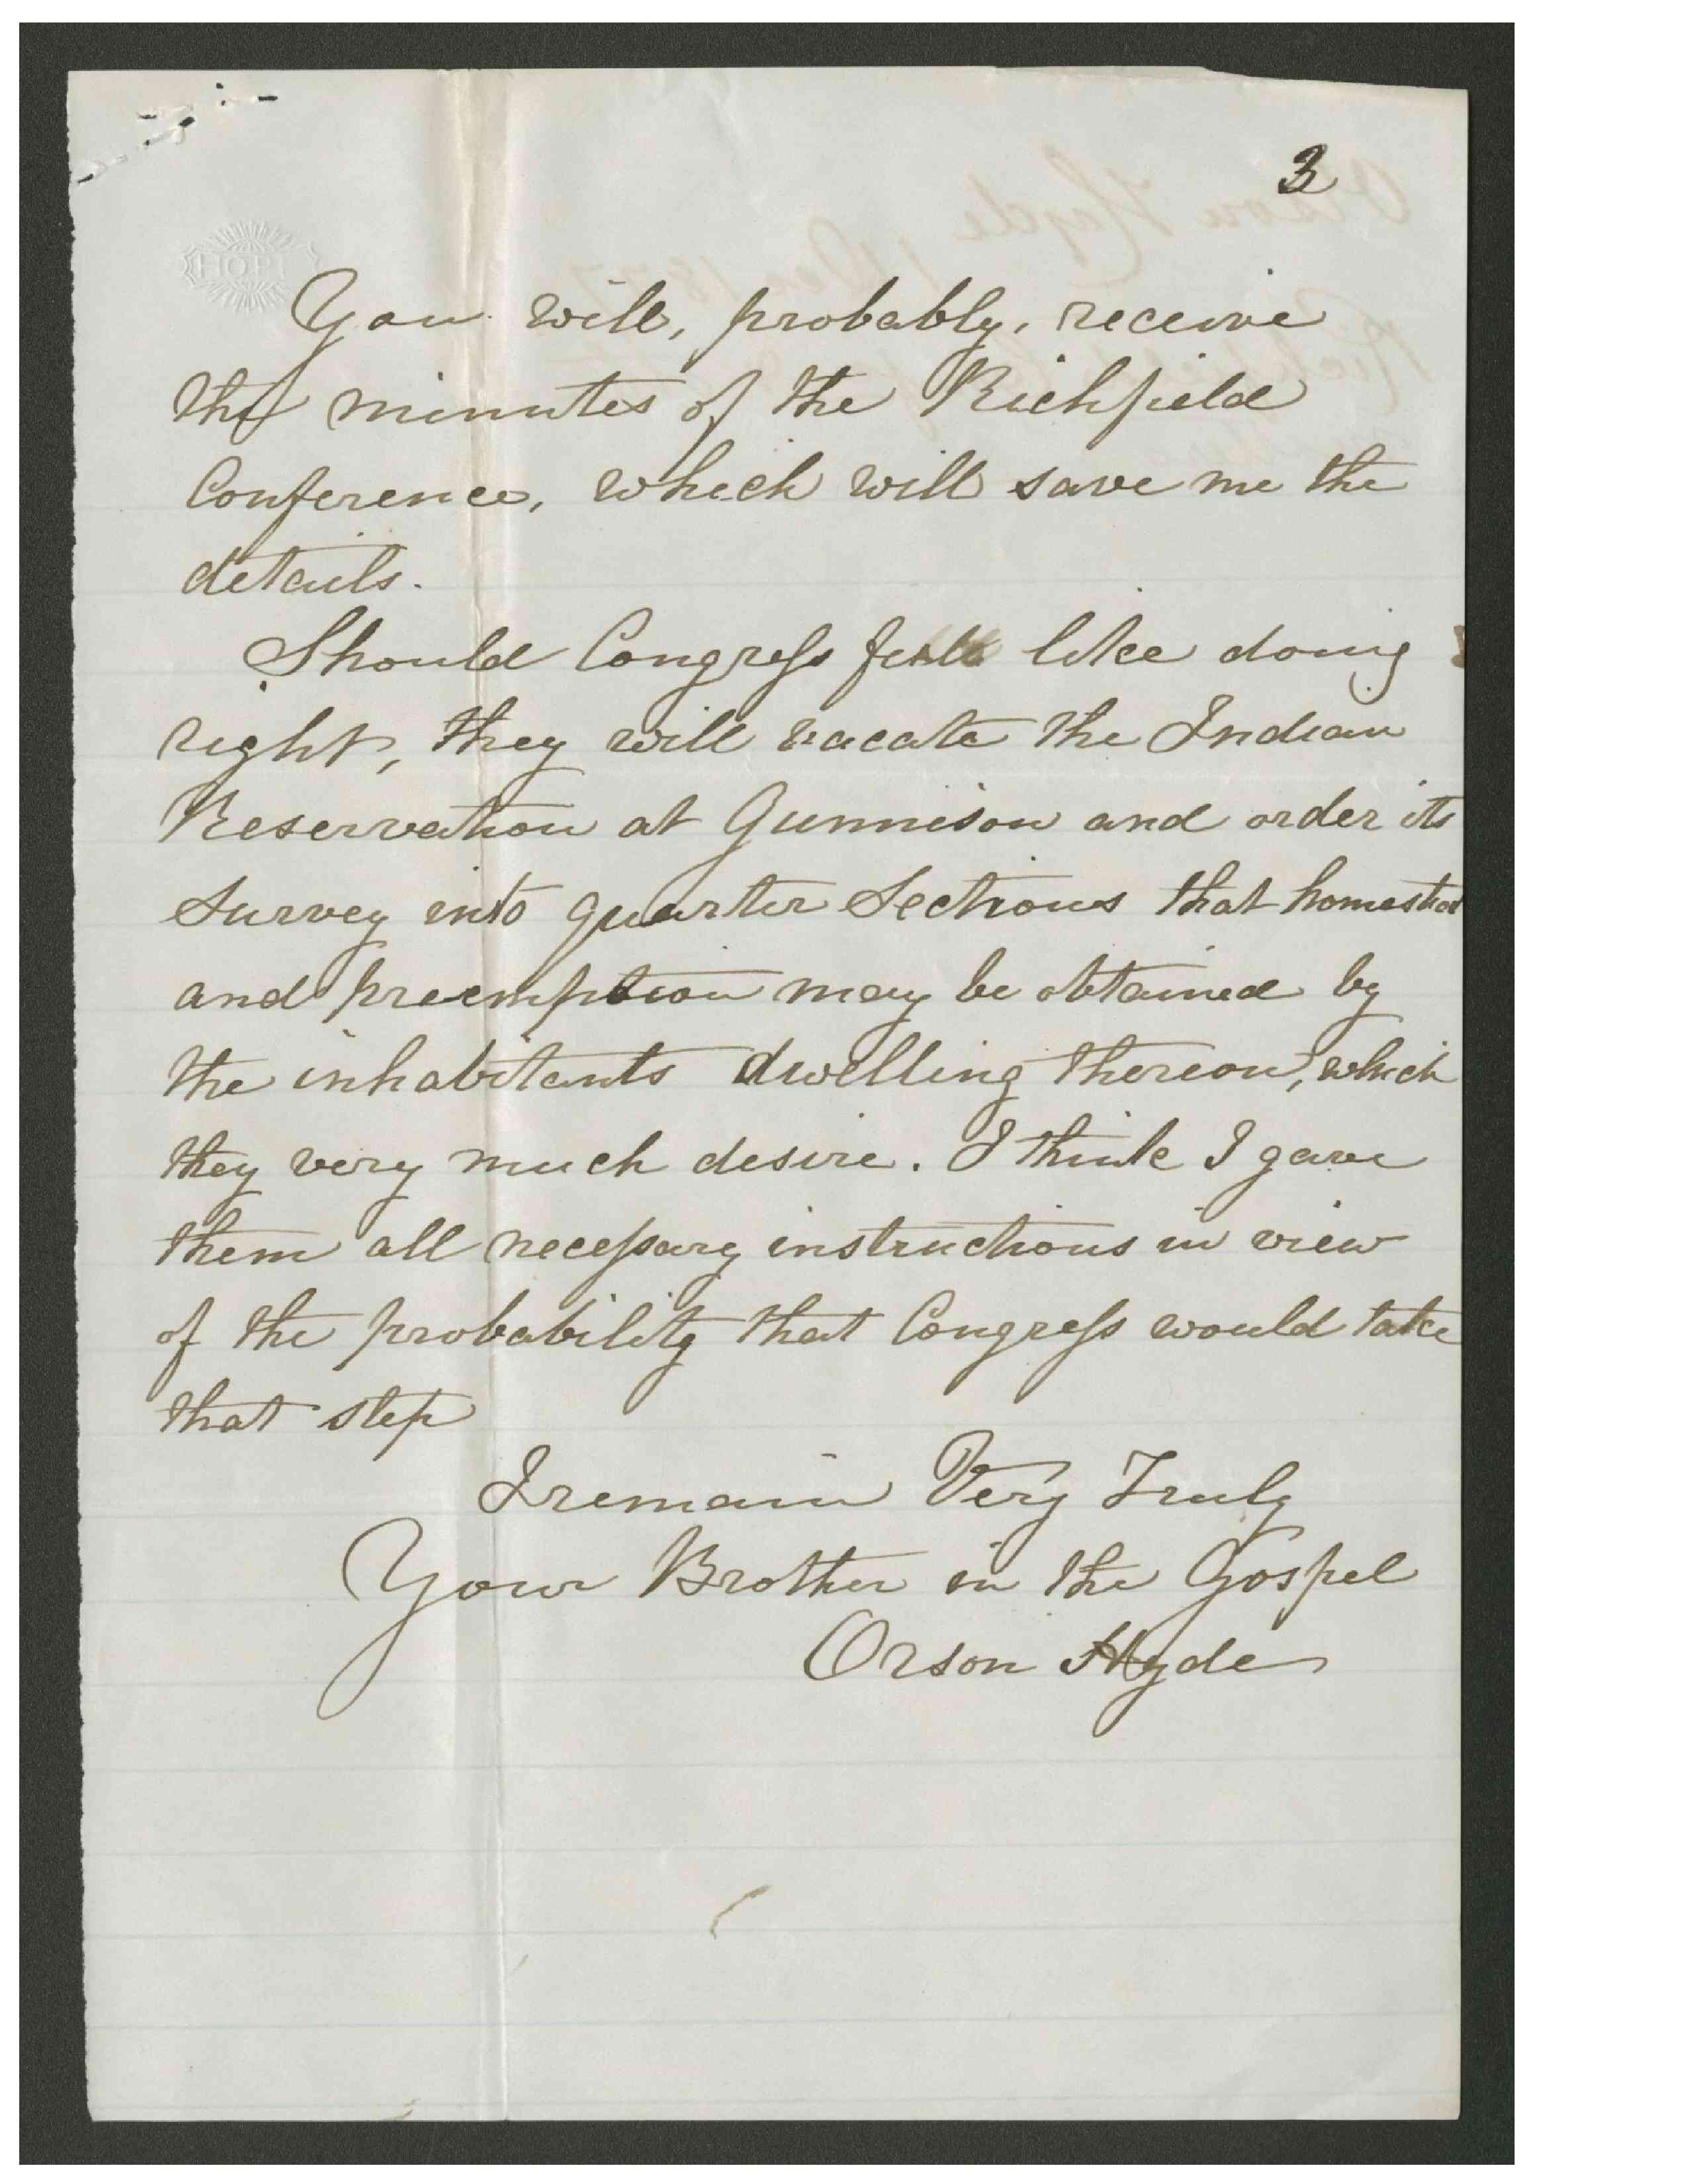 3
HOPE
You will, probably, receive
the minutes of the Richfield
Conference, which will save me the
details.
Should Congress feel like doing
right, they will vacate the Indian
Reservation at Gunnison and order its
Survey into quarter Sections that homestead
and preemption may be obtained by
the inhabitants dwelling thereon, which
they very much desire. I think I gave
them all necessary instructions in view
of the probability that Congress would take
that step
I remain Very Truly
Your Brother in the Gospel
Orson Hyde